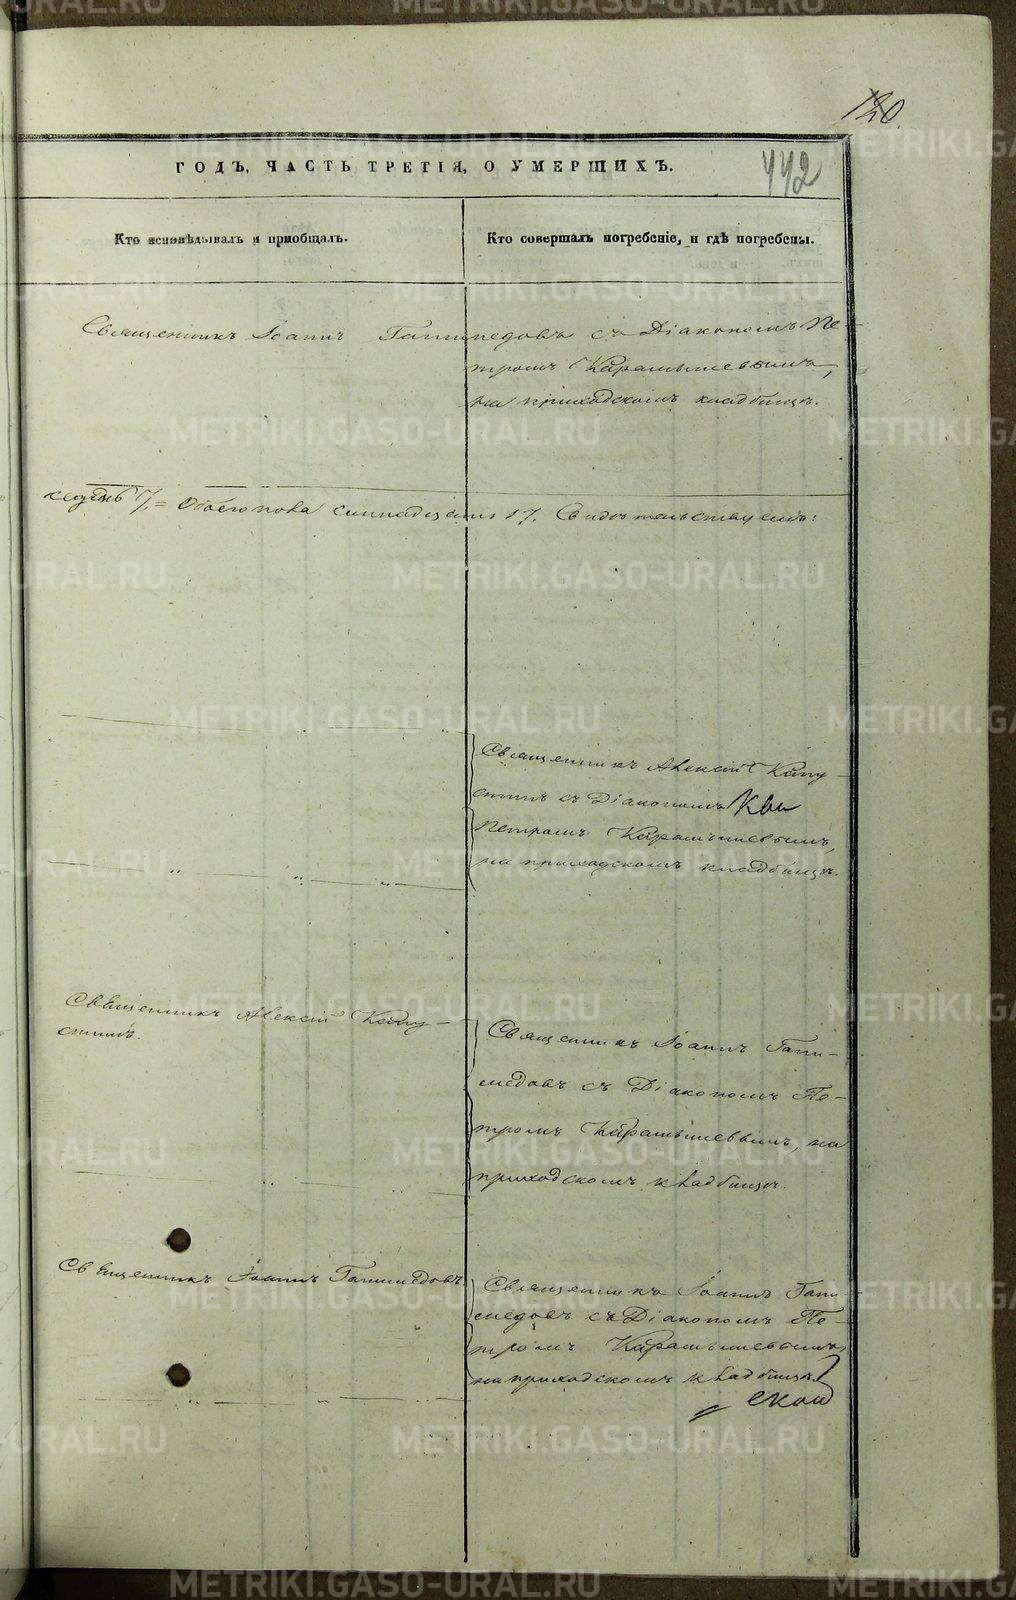 120.
442
ГОДЪ, ЧАСТЬ ТРЕТІЯ, О УМЕРШИХЪ.
Кто исповѣдывалъ и пріобщалъ.
Кто совершалъ погребеніе, и гдѣ погребены.
Священникъ Іоаннъ Ганимедовъ съ Діакономъ Пе-
тромъ Карамышевымъ,
на приходскомъ кладбищѣ.
седмь 7,= Обоего пола семнадцать 17. Свидѣтельствуемъ:
Священникъ Алексій Капу-
стинъ съ Діакономъ
Петромъ Карамышевымъ,
на приходскомъ кладбищѣ.
Священникъ Алексій Капу-
стинъ.
Священникъ Іоаннъ Гани-
медовъ съ Діакономъ Пе-
тромъ Карамышевымъ, на
приходскомъ кладбищѣ.
Священникъ Іоаннъ Ганимедовъ.
Священникъ Іоаннъ Гани-
медовъ съ Діакономъ Пе-
тромъ Карамышевымъ,
на приходскомъ кладбищѣ.
METRIKI.GASO-URAL.RU